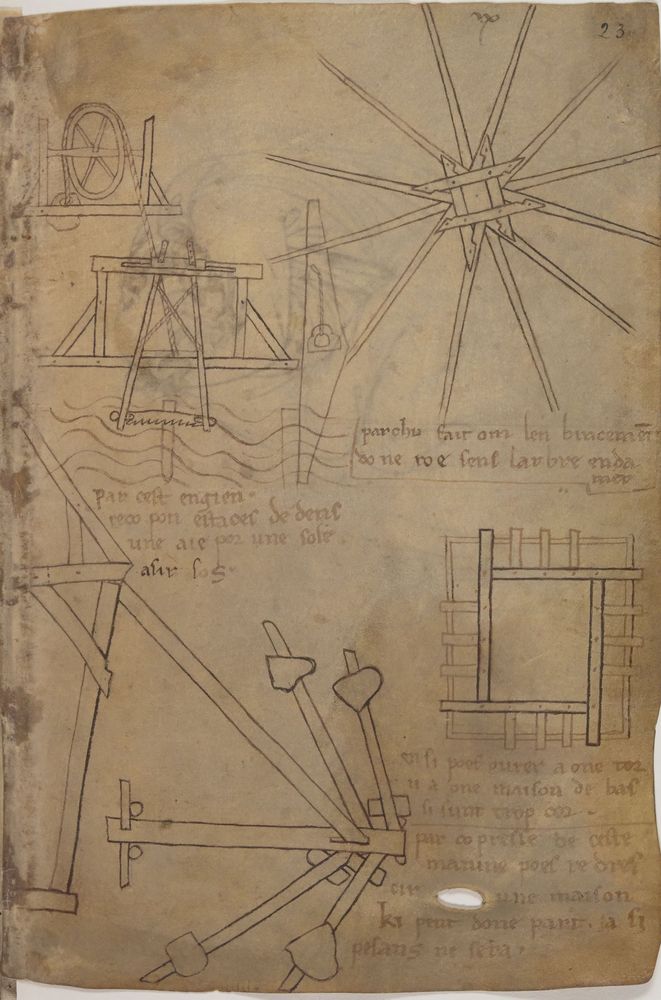 23
par chu fait om len bincemēt
do ne roe sens larbre enda
mer
par cest engien
reco pon estaces de dens
une aie por une sole
asir sos.
ensi poes ourer a one tor
u a one maison de bas
si sunt trop cor.
par copresse de ceste
maniire poes re dres
cir une maison
ki pent done part. ja si
pesans ne sera.